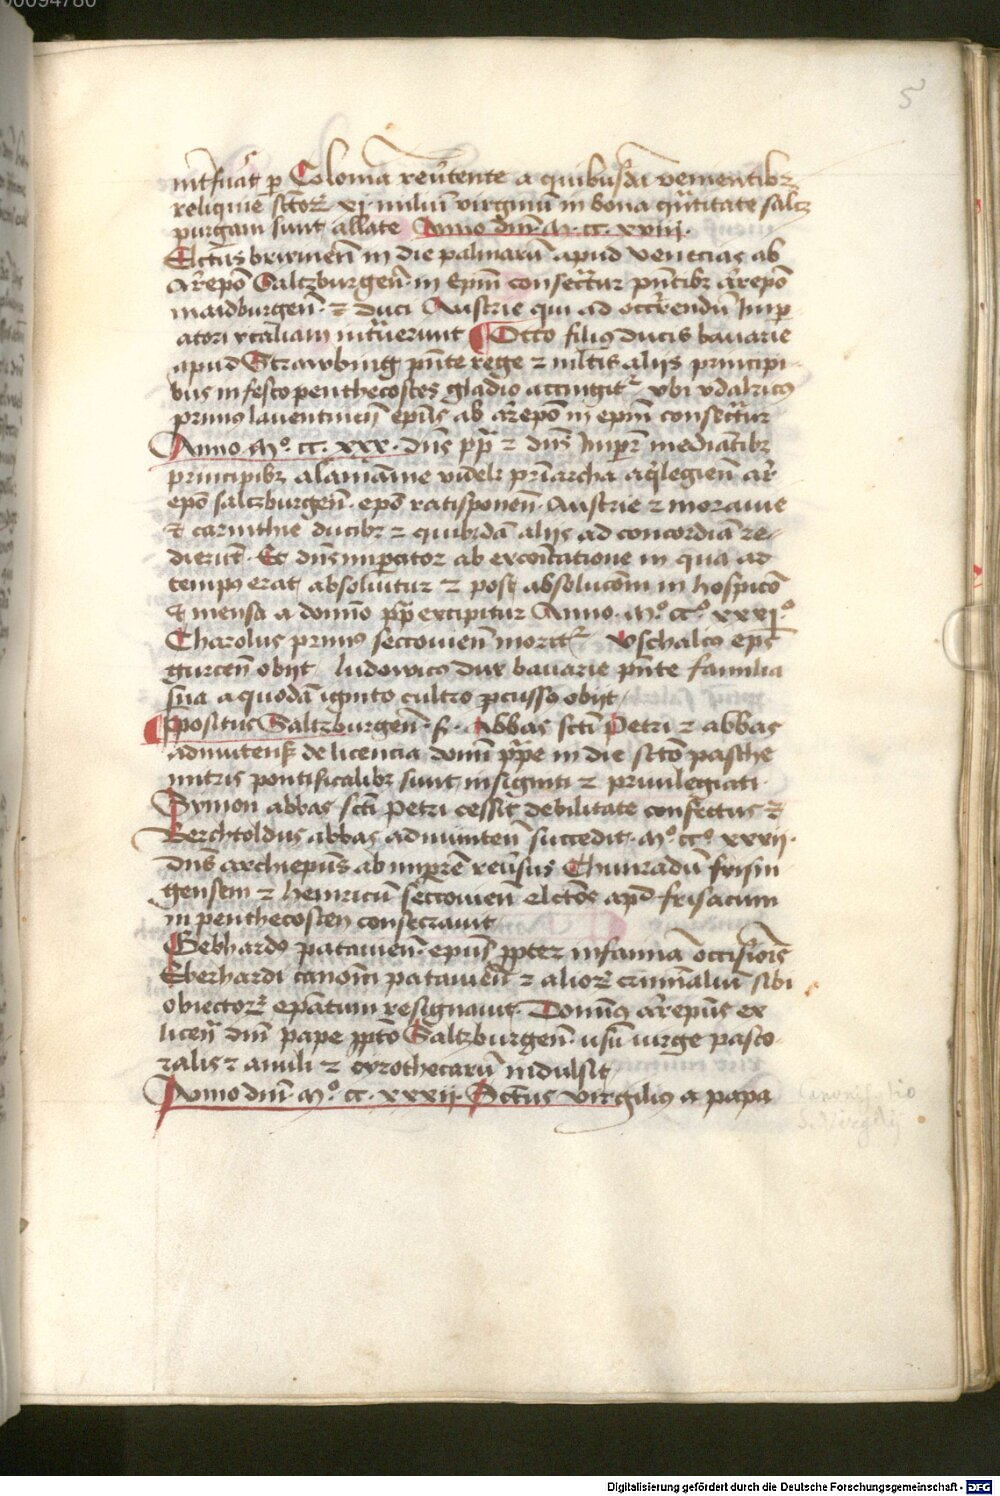 5
int̄fuāt p Coloniā reūtente a quibusdā venientibz
reliquie sctoꝝ xj miliū virginū in bona q̄titate saltz
purgam sunt allate Anno dnī M cc xxviij.
Elctus brixineñ in die palmarū apud venecias ab
arc̄epō Saltzburgeñ in Epm̄ consecratur pn̄tibz arc̄epō
maidburgeñ ⁊ duci Austrie qui ad occr̄rendū Imp
atori ytaliam intrauerunt Otto filius ducis bauarie
apud Strawbing pn̄te rege ⁊ ml̄tis alijs principi
bus in festo penthecostes gladio accingit᷑ vbi vdalricus
primus lauentineñ ep̄us ab arc̄epō in epm̄ consecratur
Anno Mº cc xxx dn̄s pp̄ ⁊ dn̄s Imp̄r mediātibz
principibz alamānie videlz pr̄iarcha aq̄legieñ ar
epō saltzburgeñ epō ratisponeñ Austrie ⁊ morauie
⁊ carinthie ducibz ⁊ quibdā alijs ad concordiā re
dierūt Et dn̄s imperator ab excōicatione in qua ad
tempus erat absoluitur ⁊ post absolucōm in hospicio
⁊ mensa a domino pp̄ excipitur Anno Mº ccº xxxjº
Charolus primus seccouieñ morit᷑ vschalcus ep̄s
gurceñ obijt ludowicus dux bauarie pn̄te familia
sua a quodā ignoto cultro p̄cussus obijt
p̄positus Saltzburgeñ Abbas scti Petri ⁊ abbas
admuntens̄ de licencia domini pp̄e in die scto pasche
mitris pontificalibz sunt insigniti ⁊ priuilegiati
Symon abbas scti Petri cessit debilitate confectus ⁊
Berchtoldus abbas admunteñ succedit Mº ccº xxxij
dn̄s archiep̄us ab imp̄re reūsus Chunradū frisin
gensem ⁊ heinricū seccouieñ elctos apd frisacum
in penthecosten consecrauit
Gebhardus patauieñ ep̄us p̄pter infamiā occisiōis
Eberhardi canoīci patauieñ ⁊ alioꝝ criminaliū sibi
obiectoꝝ ep̄atum resignauit Dominus arc̄ep̄us ex
licen̄ dnī pape pp̄to Saltzburgeñ usū uirge pasto
ralis ⁊ anuli ⁊ cyrothecarū indulsit
Anno dnī Mº cc xxxij Sctus virgilius a papa
Canonisatio
S. Virgilij
Digitalisierung gefördert durch die Deutsche Forschungsgemeinschaft - DFG